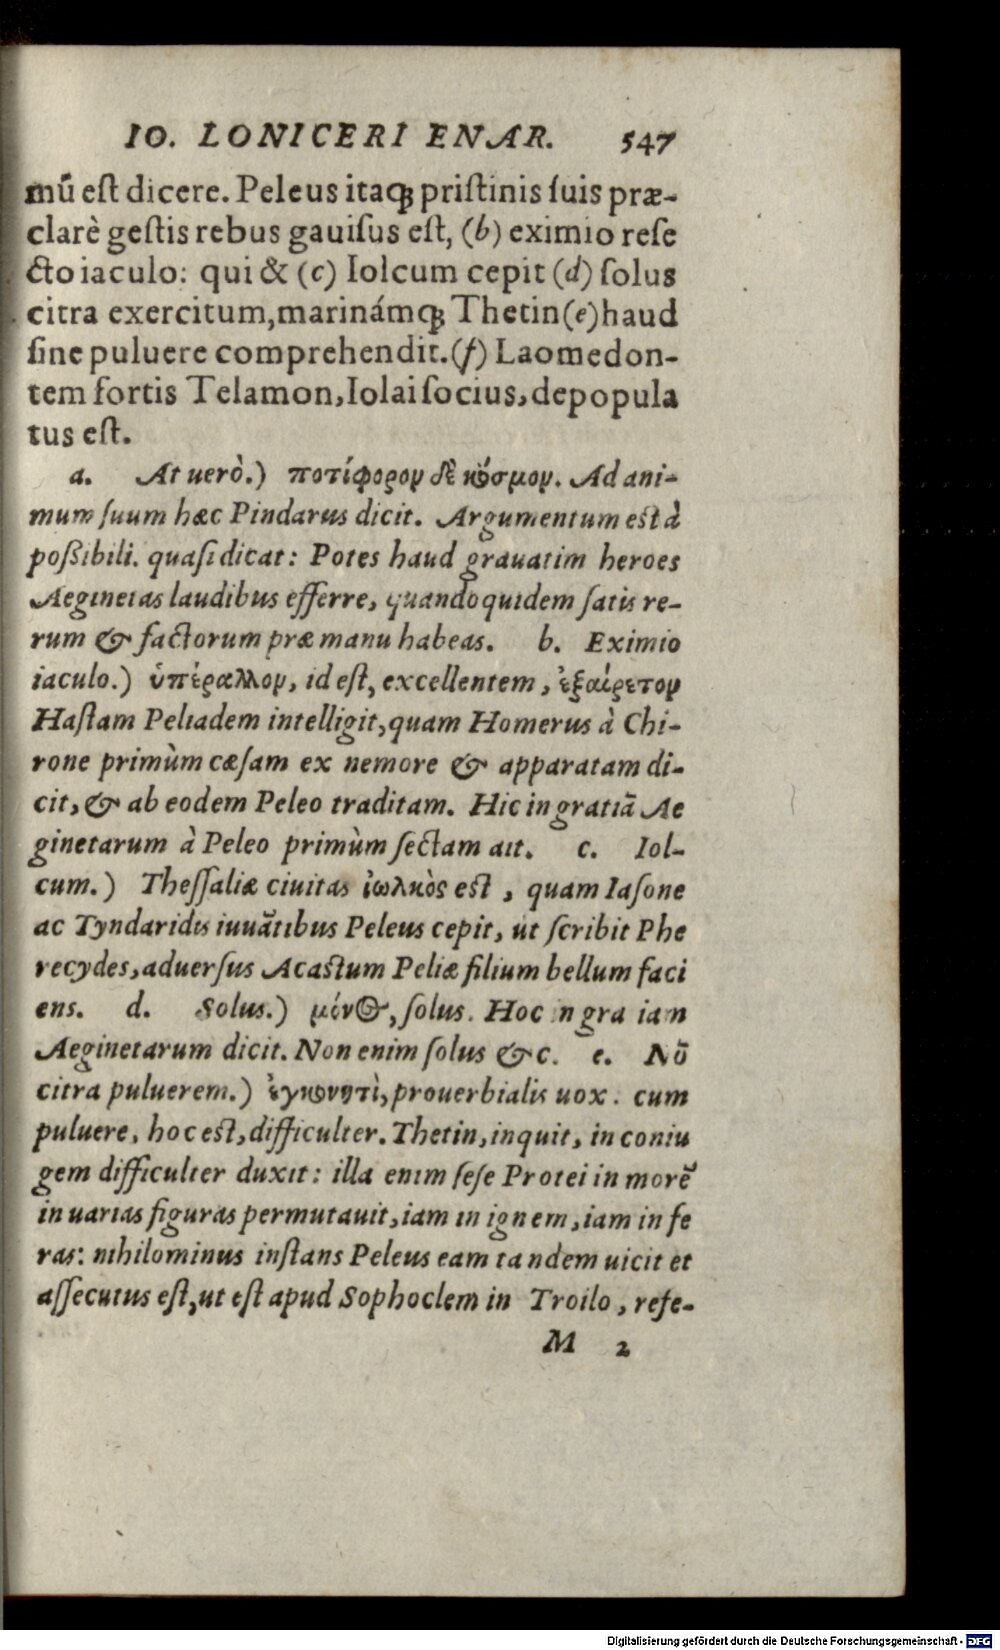 IO. LONICERI ENAR. 547
mū est dicere. Peleus itaq; pristinis suis præ-
clarè gestis rebus gauisus est, (b) eximio rese
cto iaculo: qui & (c) Iolcum cepit (d) solus
citra exercitum, marinámq; Thetin (e) haud
sine puluere comprehendit. (f) Laomedon-
tem fortis Telamon, Iolai socius, depopula
tus est.
a. At uerò.) ποτίφορον δὲ κόσμον. Ad ani-
mum suum hæc Pindarus dicit. Argumentum est à
poßibili. quasi dicat: Potes haud grauatim heroes
Aeginetas laudibus efferre, quandoquidem satis re-
rum & factorum præ manu habeas. b. Eximio
iaculo.) ὑπέραλλον, id est, excellentem, ἐξαίρετον
Hastam Peliadem intelligit, quam Homerus à Chi-
rone primùm cæsam ex nemore & apparatam di-
cit, & ab eodem Peleo traditam. Hic in gratiā Ae
ginetarum à Peleo primùm sectam ait. c. Iol-
cum.) Thessaliæ ciuitas ἰωλκὸς est, quam Iasone
ac Tyndaridis iuuātibus Peleus cepit, ut scribit Phe
recydes, aduersus Acastum Peliæ filium bellum faci
ens. d. Solus.) μόνος, solus. Hoc in gra iam
Aeginetarum dicit. Non enim solus &c. e. Nō
citra puluerem.) ἐγκονητὶ, prouerbialis uox. cum
puluere, hoc est, difficulter. Thetin, inquit, in coniu
gem difficulter duxit: illa enim sese Protei in morē
in uarias figuras permutauit, iam in ignem, iam in fe
ras: nihilominus instans Peleus eam tandem uicit et
assecutus est, ut est apud Sophoclem in Troilo, refe-
M 2
Digitalisierung gefördert durch die Deutsche Forschungsgemeinschaft - DFG